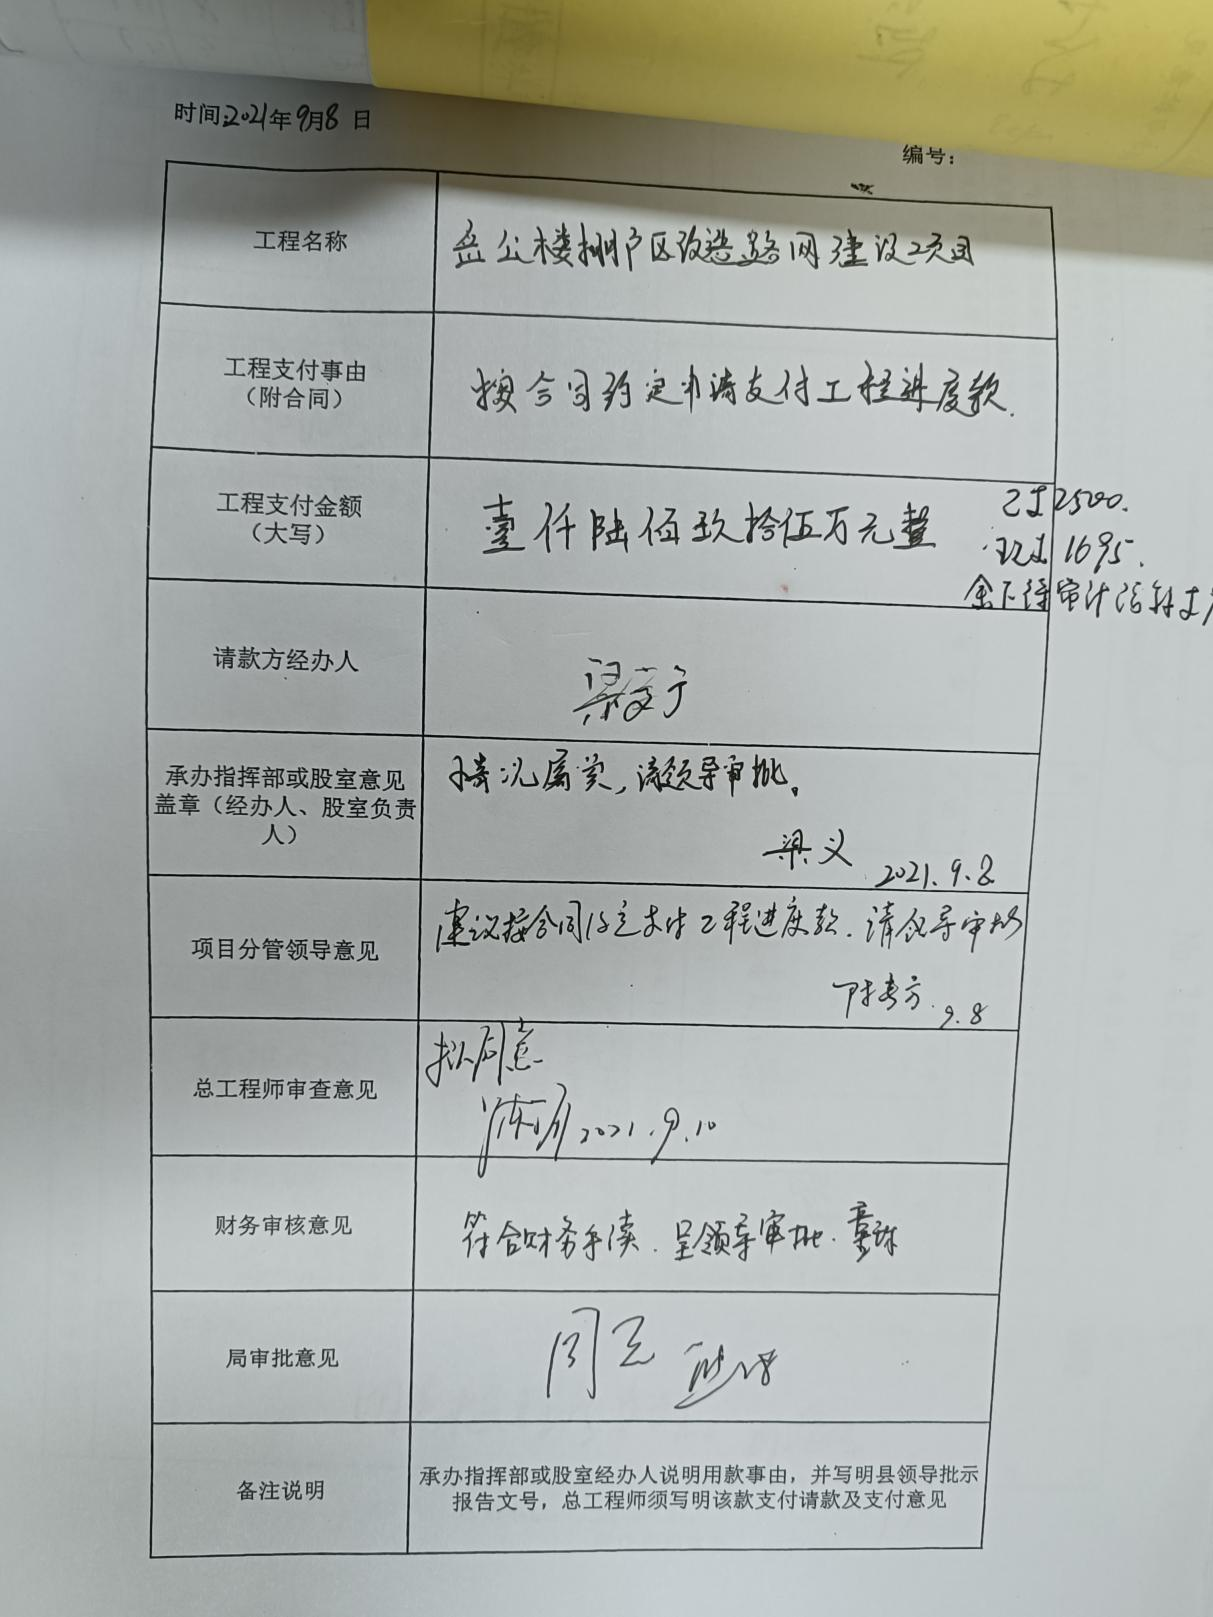 时间:2021年9月8日
编号:
工程名称
公楼棚户区改造路网建设项目
工程支付事由
(附合同)
按合同约定申请支付工程进度款.
工程支付金额
(大写)
壹仟陆佰玖拾伍万元整
已支2500.
现支1695.
余下待审计后再支
请款方经办人
承办指挥部或股室意见
盖章(经办人、股室负责
人)
情况属实,请领导审批。
梁义
2021.9.8
项目分管领导意见
建议按合同约定支付工程进度款.请领导审批
9.8
总工程师审查意见
拟同意
2021.9.10
财务审核意见
符合财务手续.呈领导审批.
局审批意见
同意
备注说明
承办指挥部或股室经办人说明用款事由,并写明县领导批示
报告文号,总工程师须写明该款支付请款及支付意见